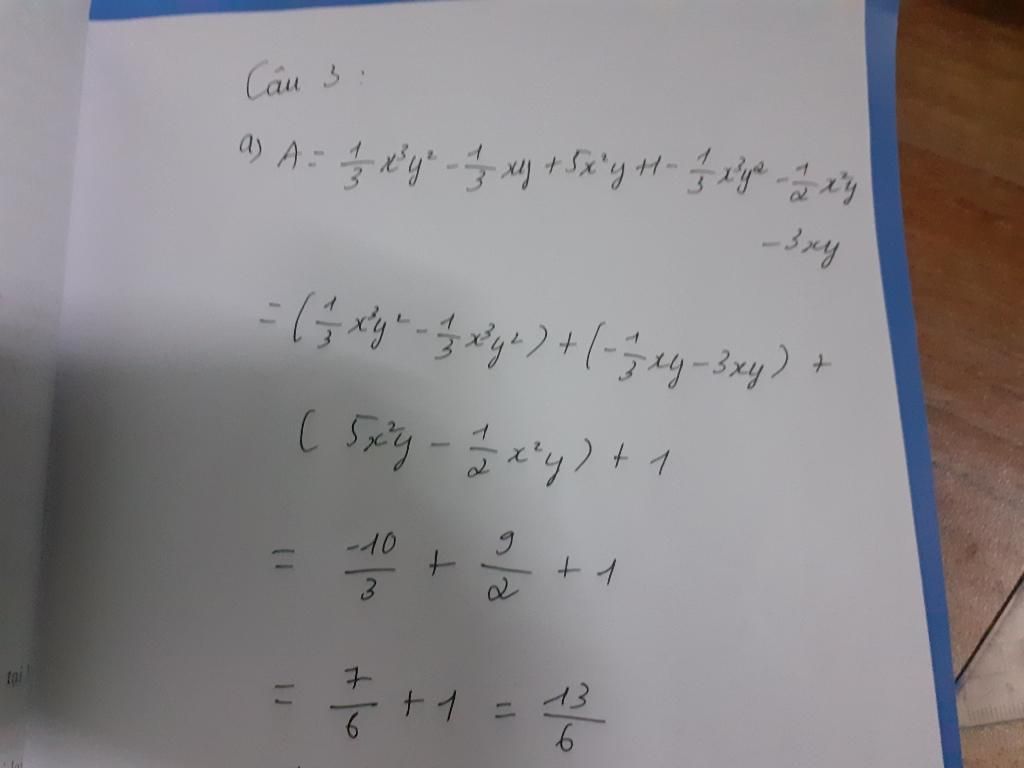 Câu 3 :
a) A = 1/3 x³y² - 1/3 xy + 5x²y + 1 - 1/3 x³y² - 1/2 x²y
- 3xy
= ( 1/3 x³y² - 1/3 x³y² ) + ( - 1/3 xy - 3xy ) +
( 5x²y - 1/2 x²y ) + 1
= -10/3 + 9/2 + 1
= 7/6 + 1 = 13/6
tại